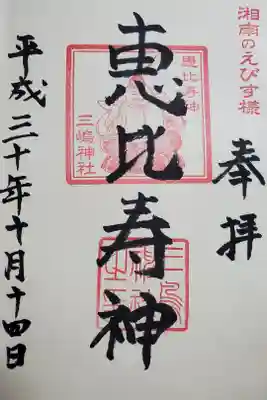 湘南のえびす様
奉拝
恵比寿神
恵比寿神
三嶋神社
平成三十年十月十四日